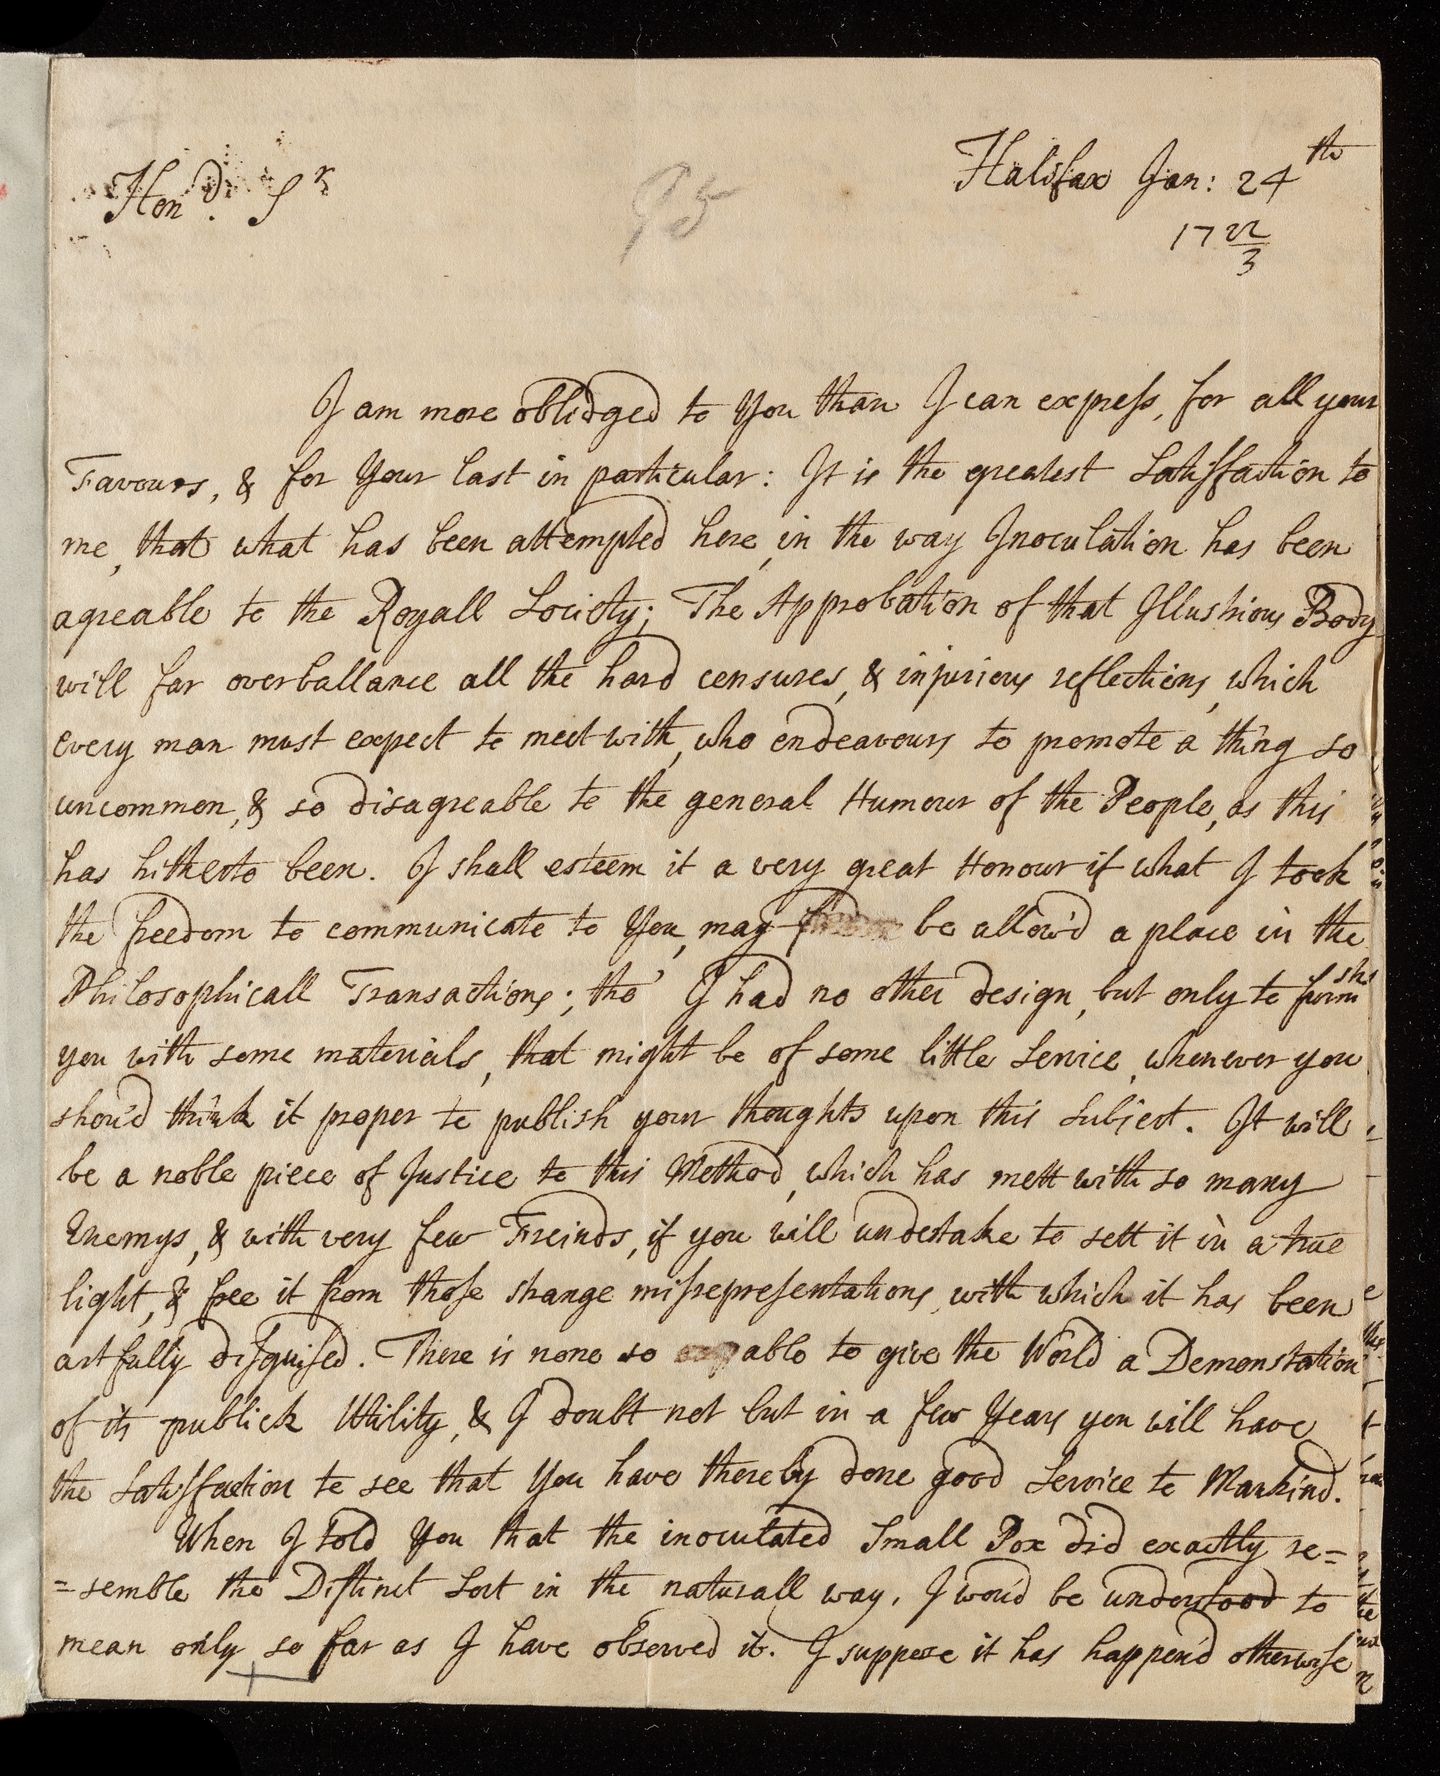 Hon.d Sr
95
Halifax Jan: 24th
1722/3
I am more oblidged to You than I can express, for all your
Favours, & for Your last in particular: It is the greatest Satisfaction to
me, that what has been attempted here, in the way Inoculation has been
agreable to the Royall Society; The Approbation of that Illustrious Body
will far overballance all the hard censures, & injurious reflections, which
every man must expect to meet with, who endeavours to promote a thing so
uncommon, & so disagreable to the general Humour of the People, as this
has hitherto been. I shall esteem it a very great Honour if what I took
the freedom to communicate to You, may be allow'd a place in the
Philosophicall Transactions; tho' I had no other design, but only to furnish
you with some materials, that might be of some little Service, whenever you
shou'd think it proper to publish your thoughts upon this Subject. It will
be a noble piece of Justice to this Method, which has mett with so many
Enemys, & with very few Freinds, if you will undertake to sett it in a true
light, & free it from those strange misrepresentations, with which it has been
artfully disguised. There is none so able to give the World a Demonstration
of its publick Utility, & I doubt not but in a few Years you will have
the Satisfaction to see that You have thereby done good Service to Mankind.
When I told You that the inoculated Small Pox did exactly re=
=semble the Distinct Sort in the naturall way, I wou'd be understood to
mean only so far as I have observed it. I suppose it has happen'd otherwise